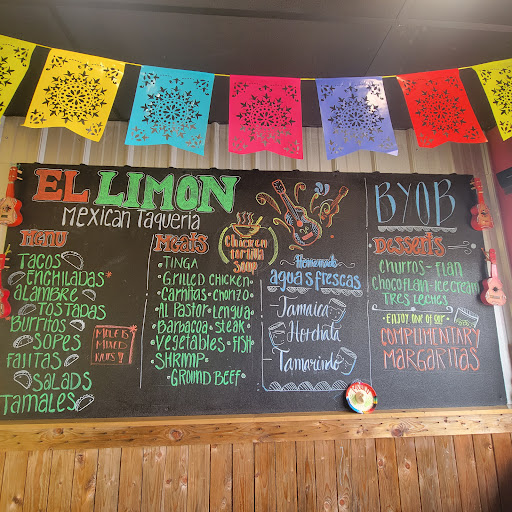 EL LIMÓN
Mexican Taqueria
Menu
Tacos
Enchiladas*
Alambre
Tostadas
Burritos
Sopes
Fajitas
Salads
Tamales
Meats
• Tinga
• Grilled Chicken
• Carnitas • Chorizo
• Al Pastor • Lengua
• Barbacoa • Steak
• Vegetables • Fish
• Shrimp
• Ground Beef
Chicken
Tortilla
Soup
Homemade
aguas frescas
Jamaica
Horchata
Tamarindo
BYOB
Desserts
Churros - Flan
Chocoflan - Ice Cream
Tres Leches
Enjoy one of our
Complimentary
Margaritas